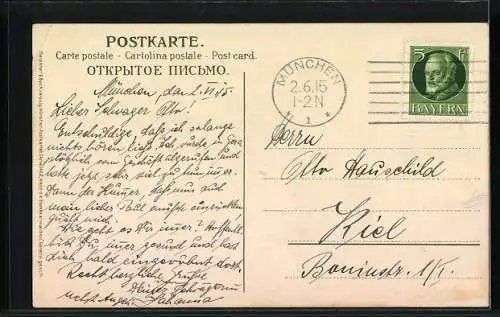 POSTKARTE.
Carte postale - Cartolina postale - Post card.
ОТКРЫТОЕ ПИСЬМО.
München, den 2. VI. 15.
Lieber Schwager Otto!
Entschuldige, daß ich solange
nichts hören ließ. Ich wurde in Gera
plötzlich vom Geschäft abgerufen und
hatte jetzt sehr viel zu tun
Dann der Kummer, daß nun auch
mein lieber Paul
mich.
Wie geht es Dir immer? Hoffentlich
bist Du immer gesund und hast
Dich bald eingewöhnt dort.
Recht herzliche Grüße
Deine Schwägerin
nebst Johanna
MÜNCHEN
2.6.15
1-2N
1
5 Pf
BAYERN
Herrn
Otto Hauschild
Kiel